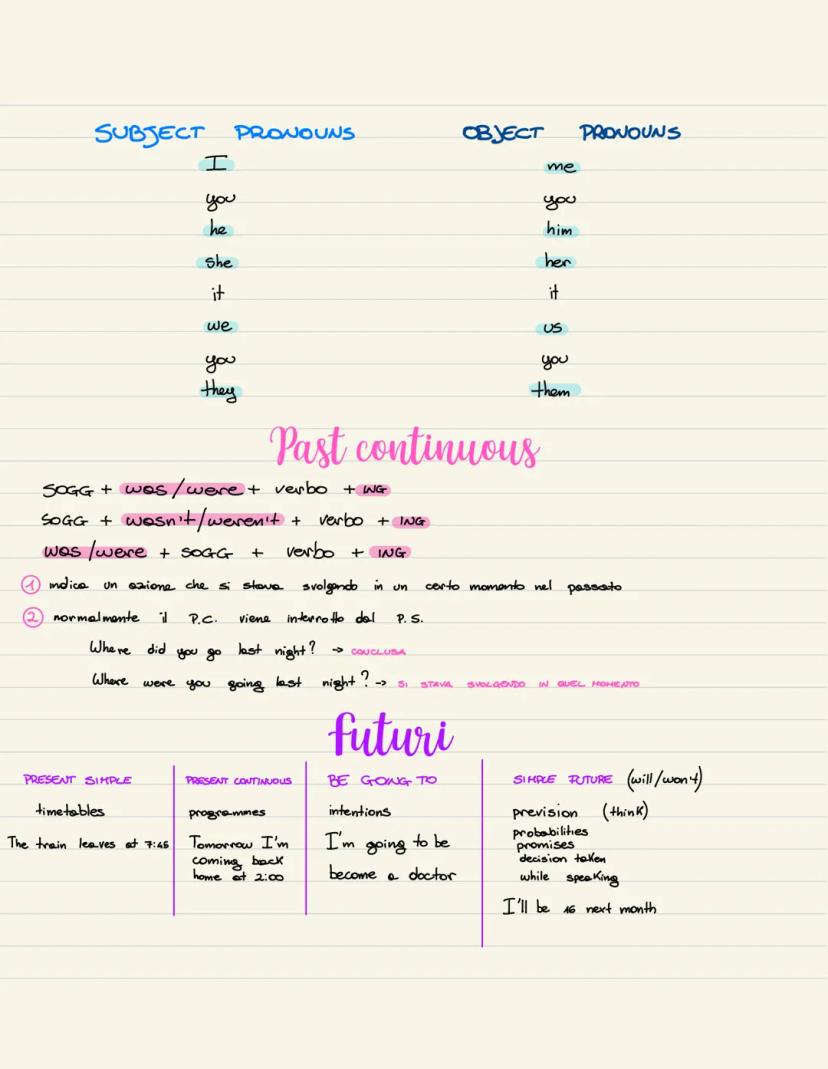 SUBJECT PRONOUNS OBJECT PRONOUNS
I me
you you
he him
she her
it it
we us
you you
they them
Past continuous
SOGG + was/were + verbo + ING
SOGG + wasn't/weren't + verbo + ING
was/were + SOGG + verbo + ING
1 indica un azione che si stava svolgendo in un certo momento nel passato
2 normalmente il P.C. viene interrotto dal P.S.
Where did you go last night? → CONCLUSA
Where were you going last night? → SI STAVA SVOLGENDO IN QUEL MOMENTO
futuri
PRESENT SIMPLE
timetables
The train leaves at 7:45
PRESENT CONTINUOUS
programmes
Tomorrow I'm
coming back
home at 2:00
BE GOING TO
intentions
I'm going to be
become a doctor
SIMPLE FUTURE (will/won't)
prevision (think)
probabilities
promises
decision taken
while speaking
I'll be 16 next month